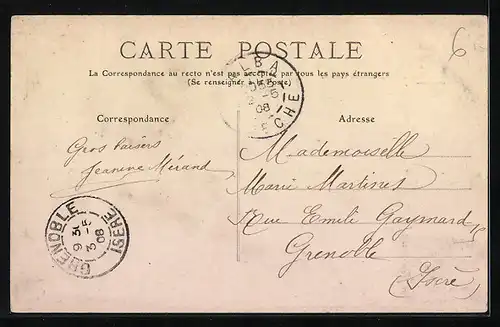 6
CARTE POSTALE
La Correspondance au recto n'est pas acceptée par tous les pays étrangers
(Se renseigner à la Poste)
Correspondance
Adresse
Gros baisers
Jeanine Mérand
Mademoiselle
Marie Martines
Rue Emile Gaymard
Grenoble
(Isère)
GRENOBLE
ISERE
9 31
3 -5
08
LBA
-5
08
CHE